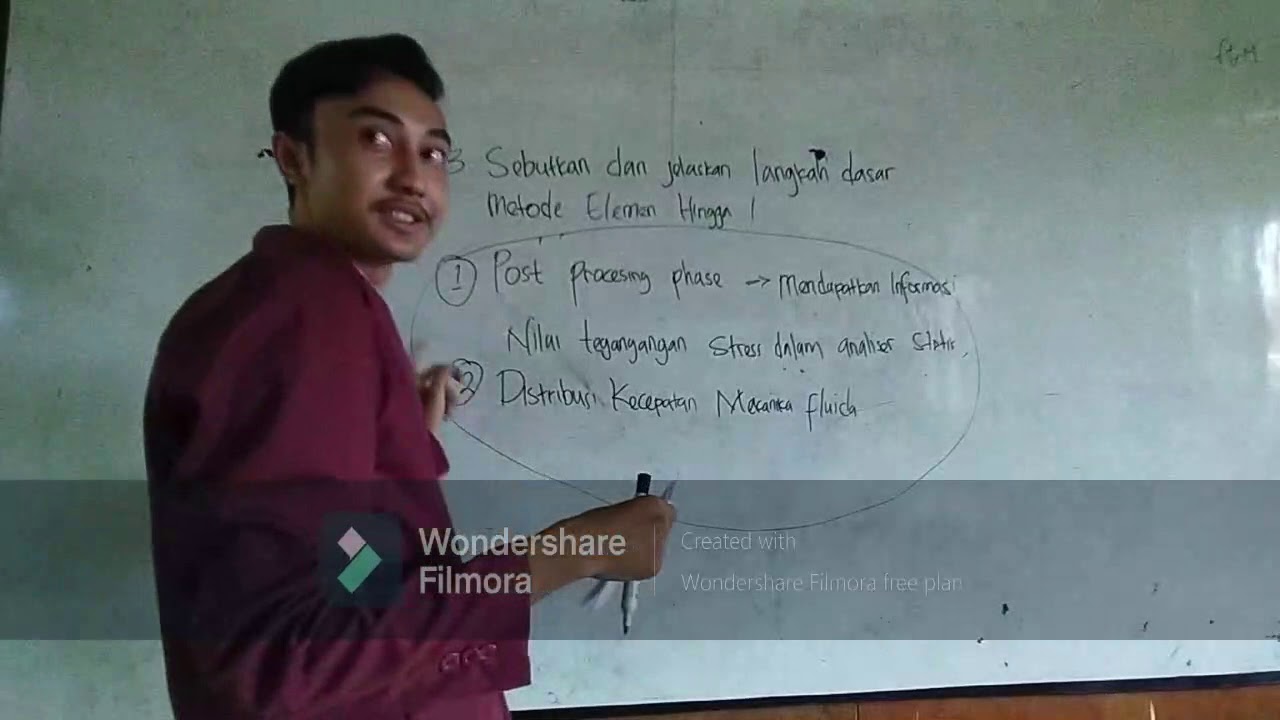 3 Sebutkan dan jelaskan langkah dasar
Metode Elemen Hingga !
① Post procesing phase → Mendapatkan Informasi
Nilai tegangangan stress dalam analiser statis,
② Distribusi Kecepatan Mecanika fluida
Wondershare
Filmora
Created with
Wondershare Filmora free plan